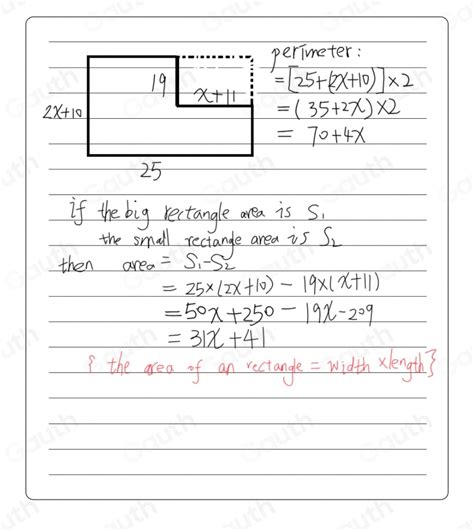 perimeter:
19
x+11
= [25+(2x+10)]×2
2x+10
= (35+2x)×2
= 70+4x
25
if the big rectangle area is S₁
the small rectange area is S₂
then area = S₁-S₂
= 25×(2x+10) - 19×(x+11)
= 50x+250 - 19x-209
= 31x+41
{ the area of an rectangle = width × length }
Gauth